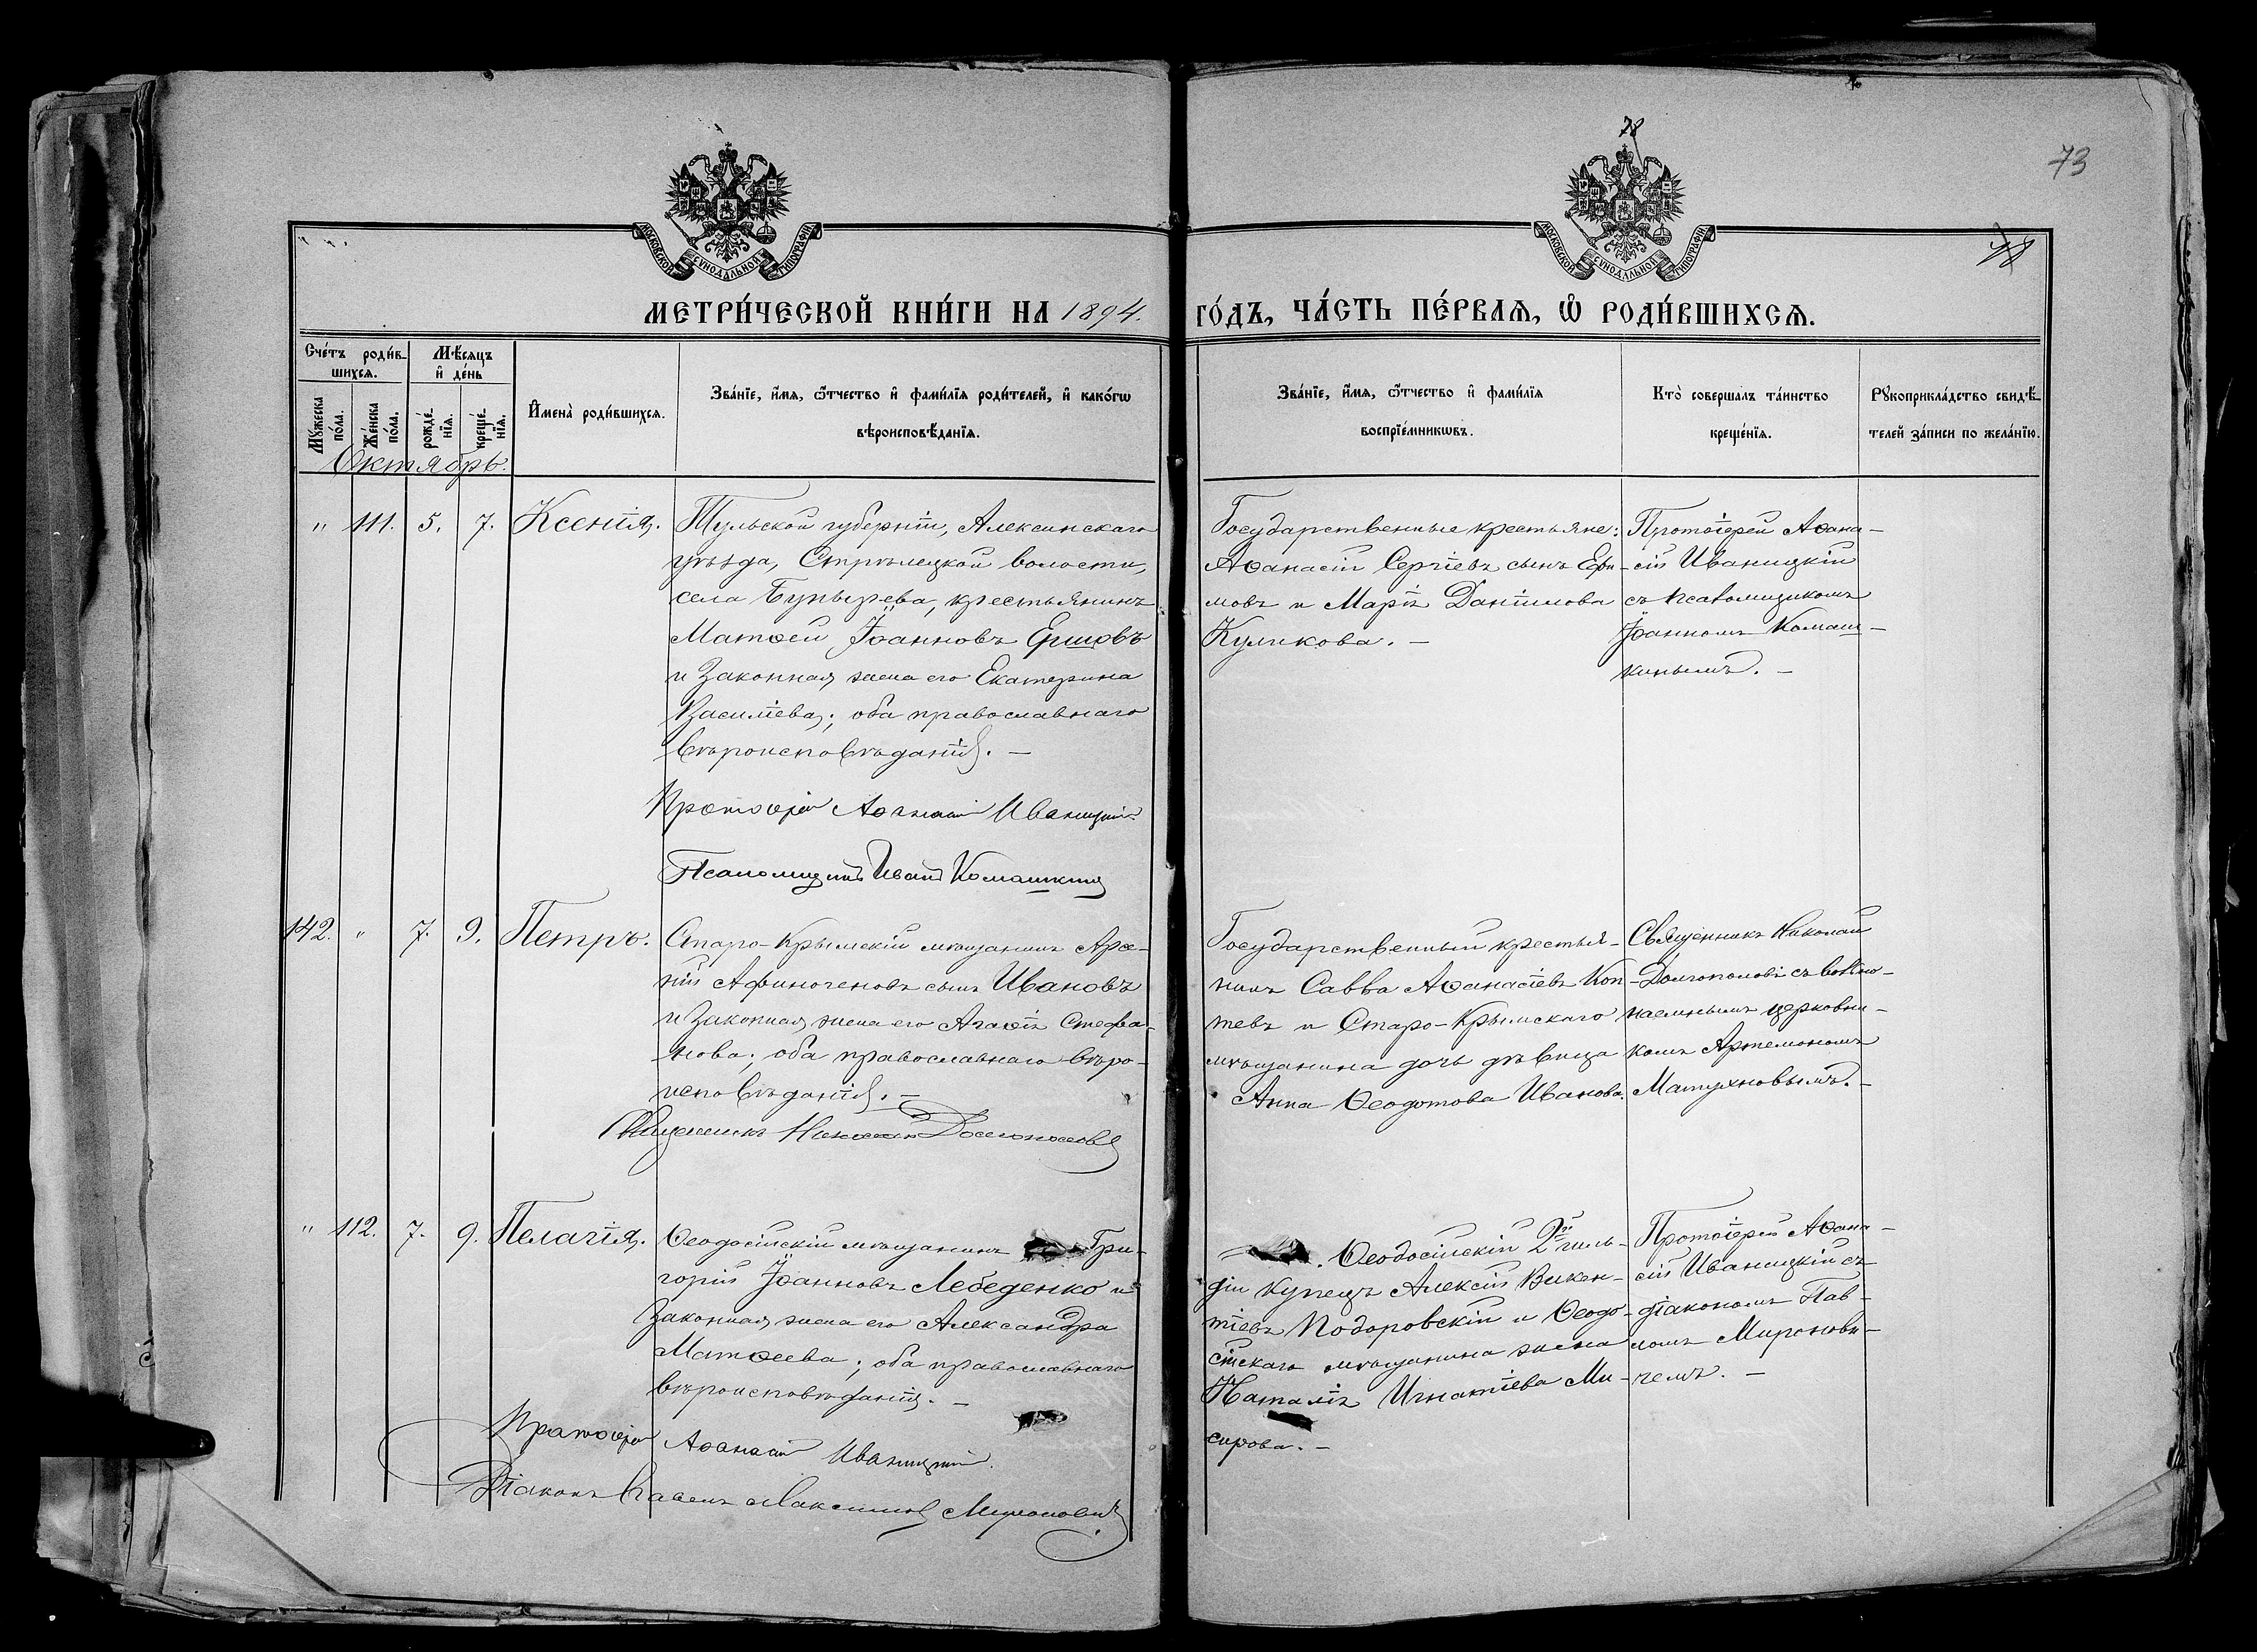 78
73
78
МОСКОВСКОЙ СУНОДАЛЬНОЙ ТИПОГРАФІИ
МОСКОВСКОЙ СУНОДАЛЬНОЙ ТИПОГРАФІИ
МЕТРИ́ЧЕСКОЙ КНИ́ГИ НА 1894. ГО́ДЪ, ЧА́СТЬ ПЕ́РВАѦ, Ѡ҆ РОДИ́ВШИХСѦ.
Сче́тъ роди́в-
шихсѧ.
Мѣ́сѧцъ
и҆ де́нь
Мꙋ́жеска
по́ла.
Же́нска
по́ла.
рожде́-
нїѧ.
креще́-
нїѧ.
И҆мена̀ роди́вшихсѧ.
Зва́нїе, и҆́мѧ, ѻ҆́тчество и҆ фами́лїѧ роди́телей, и҆ како́гѡ
вѣроисповѣ́данїѧ.
Зва́нїе, и҆́мѧ, ѻ҆́тчество и҆ фами́лїѧ
воспрїе́мникѡвъ.
Кто̀ соверша́лъ та́инство
креще́нїѧ.
Рꙋкоприкла́дство свидѣ́-
телей за́писи по жела́нїю.
Октябрь.
" 111. 5. 7. Ксенія.
Тульской губерніи, Алексинскаго
уѣзда, Стрѣлецкой волости,
села Бунырева, крестьянинъ
Матѳей Іоанновъ Ершовъ
и законная жена его Екатерина
Василіева; оба православнаго
вѣроисповѣданія. –
Протоіерей Аѳанасій Иваницкій
Псаломщикъ Иванъ Комашкинъ
Государственные крестьяне:
Аѳанасій Сергіевъ сынъ Ефи-
мовъ и Марія Даніилова
Куликова. –
Протоіерей Аѳана-
сій Иваницкій
съ псаломщикомъ
Іоанномъ Комаш-
кинымъ. –
142. " 7. 9. Петръ.
Старо-Крымскій мѣщанинъ Арсе-
ній Афиногеновъ сынъ Ивановъ
и законная жена его Агаѳія Стефа-
нова; оба православнаго вѣро-
исповѣданія. –
Священникъ Николай Долгополовъ
Государственный крестья-
нинъ Савва Аѳанасіевъ Коп-
тевъ и Старо-Крымскаго
мѣщанина дочь дѣвица
Анна Ѳеодотова Иванова.
Священникъ Николай
Долгополовъ съ вольно-
наемнымъ церковни-
комъ Артемономъ
Матухновымъ. –
" 112. 7. 9. Пелагія.
Ѳеодосійскій мѣщанинъ Гри-
горій Іоанновъ Лебеденко и
законная жена его Александра
Матѳеева; оба православнаго
вѣроисповѣданія. –
Протоіерей Аѳанасій Иваницкій.
Діаконъ Павелъ Максимовъ Мироновичъ
Ѳеодосійскій 2й гиль-
діи купецъ Алексій Викен-
тіевъ Подоровскій и Ѳеодо-
сійскаго мѣщанина жена
Наталія Игнатіева Ми-
сирова. –
Протоіерей Аѳана-
сій Иваницкій съ
діакономъ Пав-
ломъ Миронови-
чемъ. –